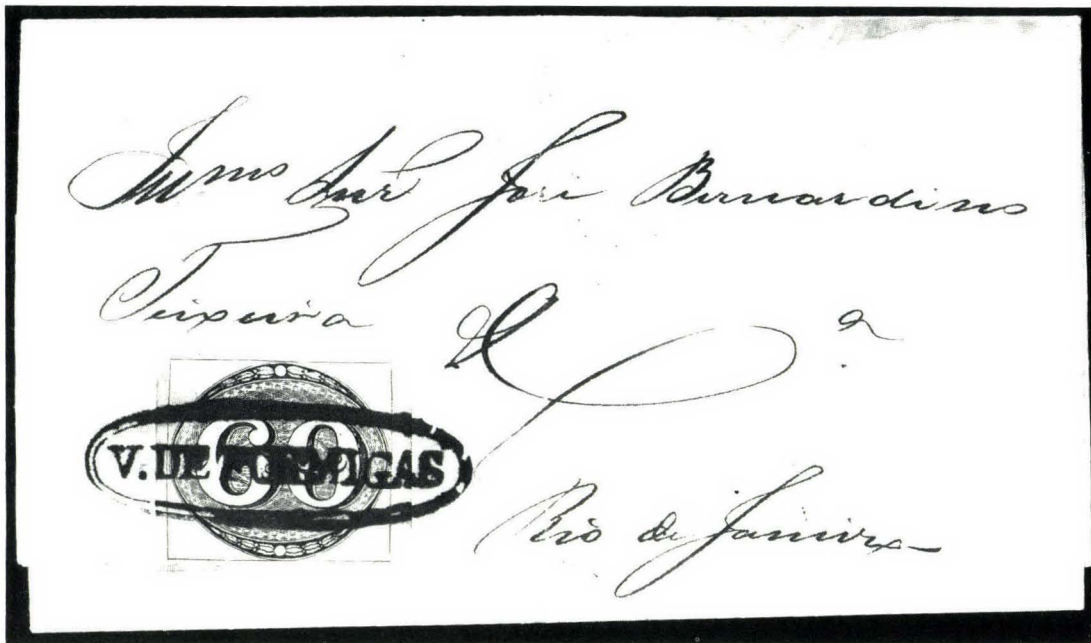 Illmo Snr José Bernardino
Teixeira & Ca
60
V. DE FORMIGAS
Rio de Janeiro